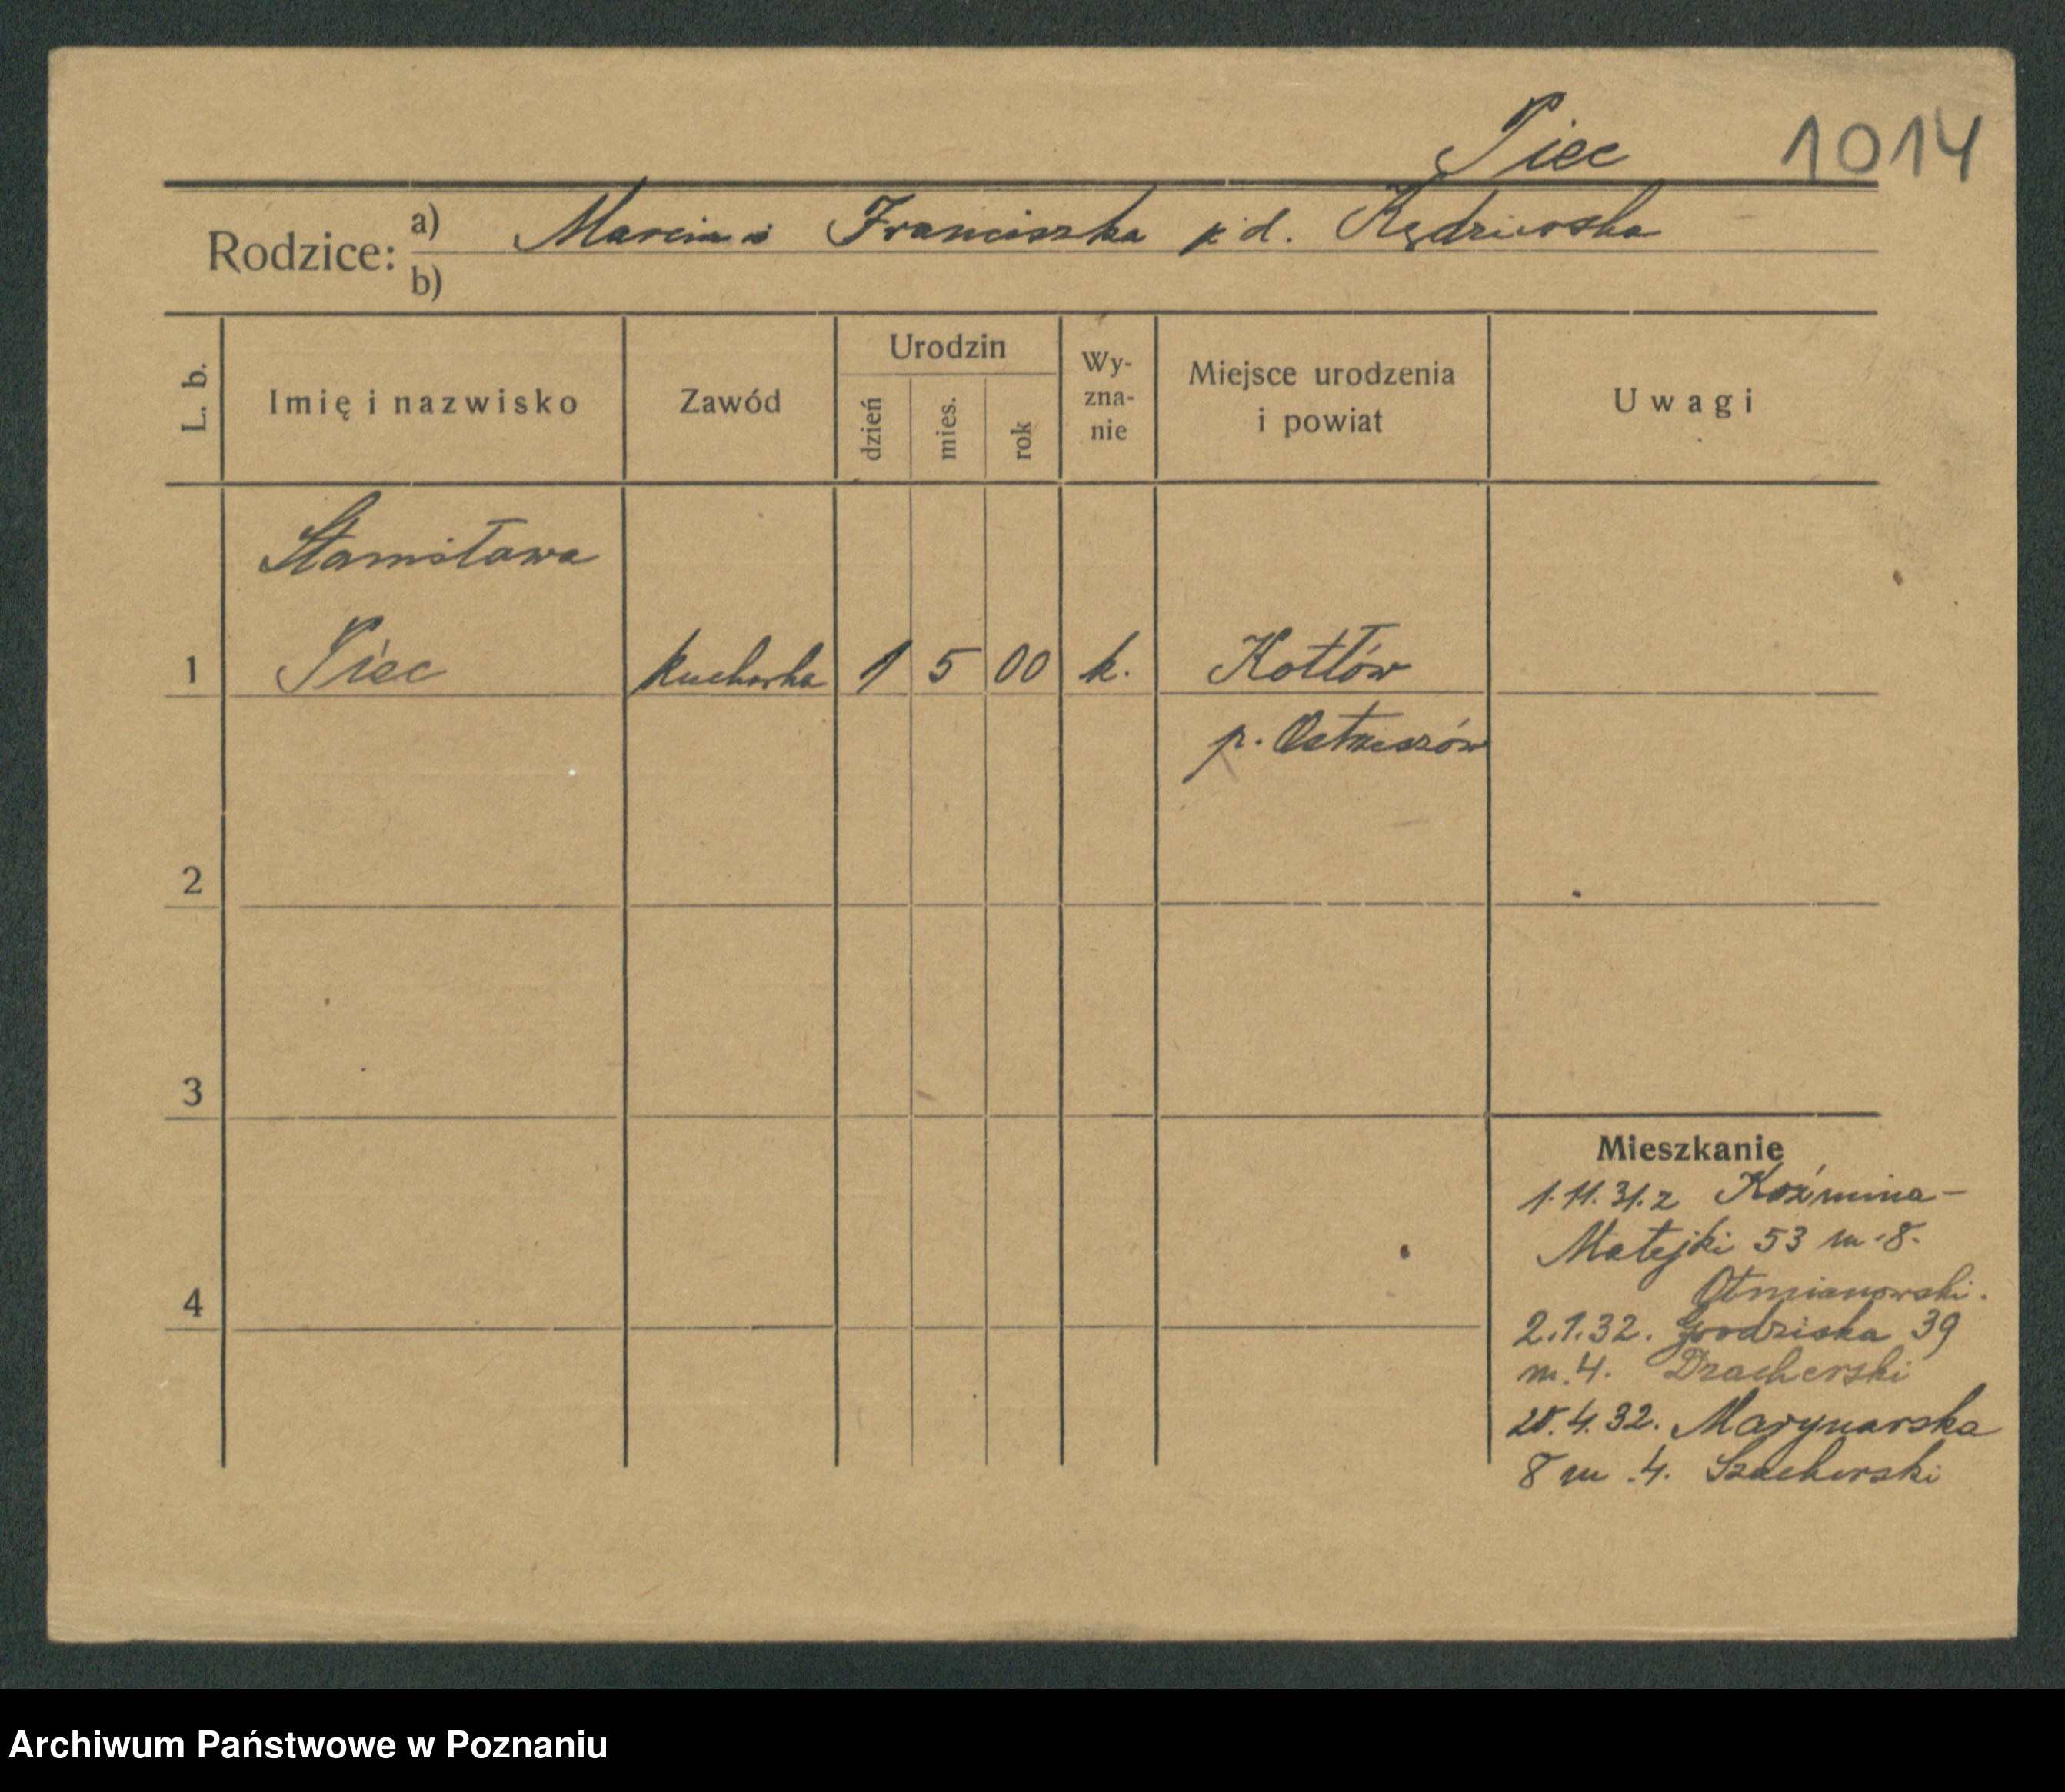 Piec 1014
Rodzice: a) Marcin i Franciszka z d. Kędzierska
b)
L. b. Imię i nazwisko Zawód Urodzin dzień mies. rok Wy-zna-nie Miejsce urodzenia i powiat Uwagi
Stanisława
1 Piec kucharka 1 5 00 k. Kotłów
p. Ostrzeszów
2
3
Mieszkanie
1.11.31. z Koźmina-
Matejki 53 m. 8.
4 Otmianowski.
2.1.32. Grodziska 39
m. 4.
20.4.32. Marynarska
8 m. 4. Szacherski
Archiwum Państwowe w Poznaniu